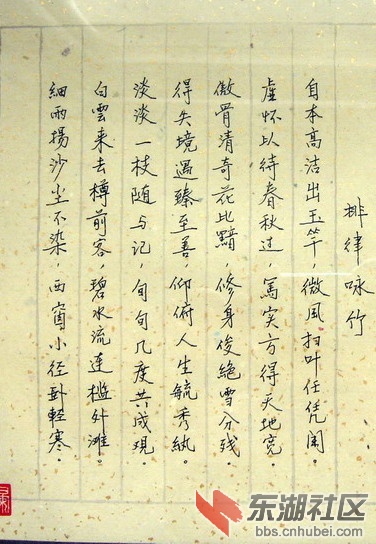 排律咏竹
自本高洁出玉竿,微风扫叶任凭阑。
虚怀以待春秋过,笃实方得天地宽。
傲骨清奇花比黯,修身俊絶雪分残。
得失境遇臻至善,仰俯人生毓秀纨。
淡淡一枝随与记,旬旬几度共成现。
白雲来去樽前客,碧水流连槛外滩。
細雨揚沙尘不染,西窗小径卧輕寒。
东湖社区
bbs.cnhubei.com